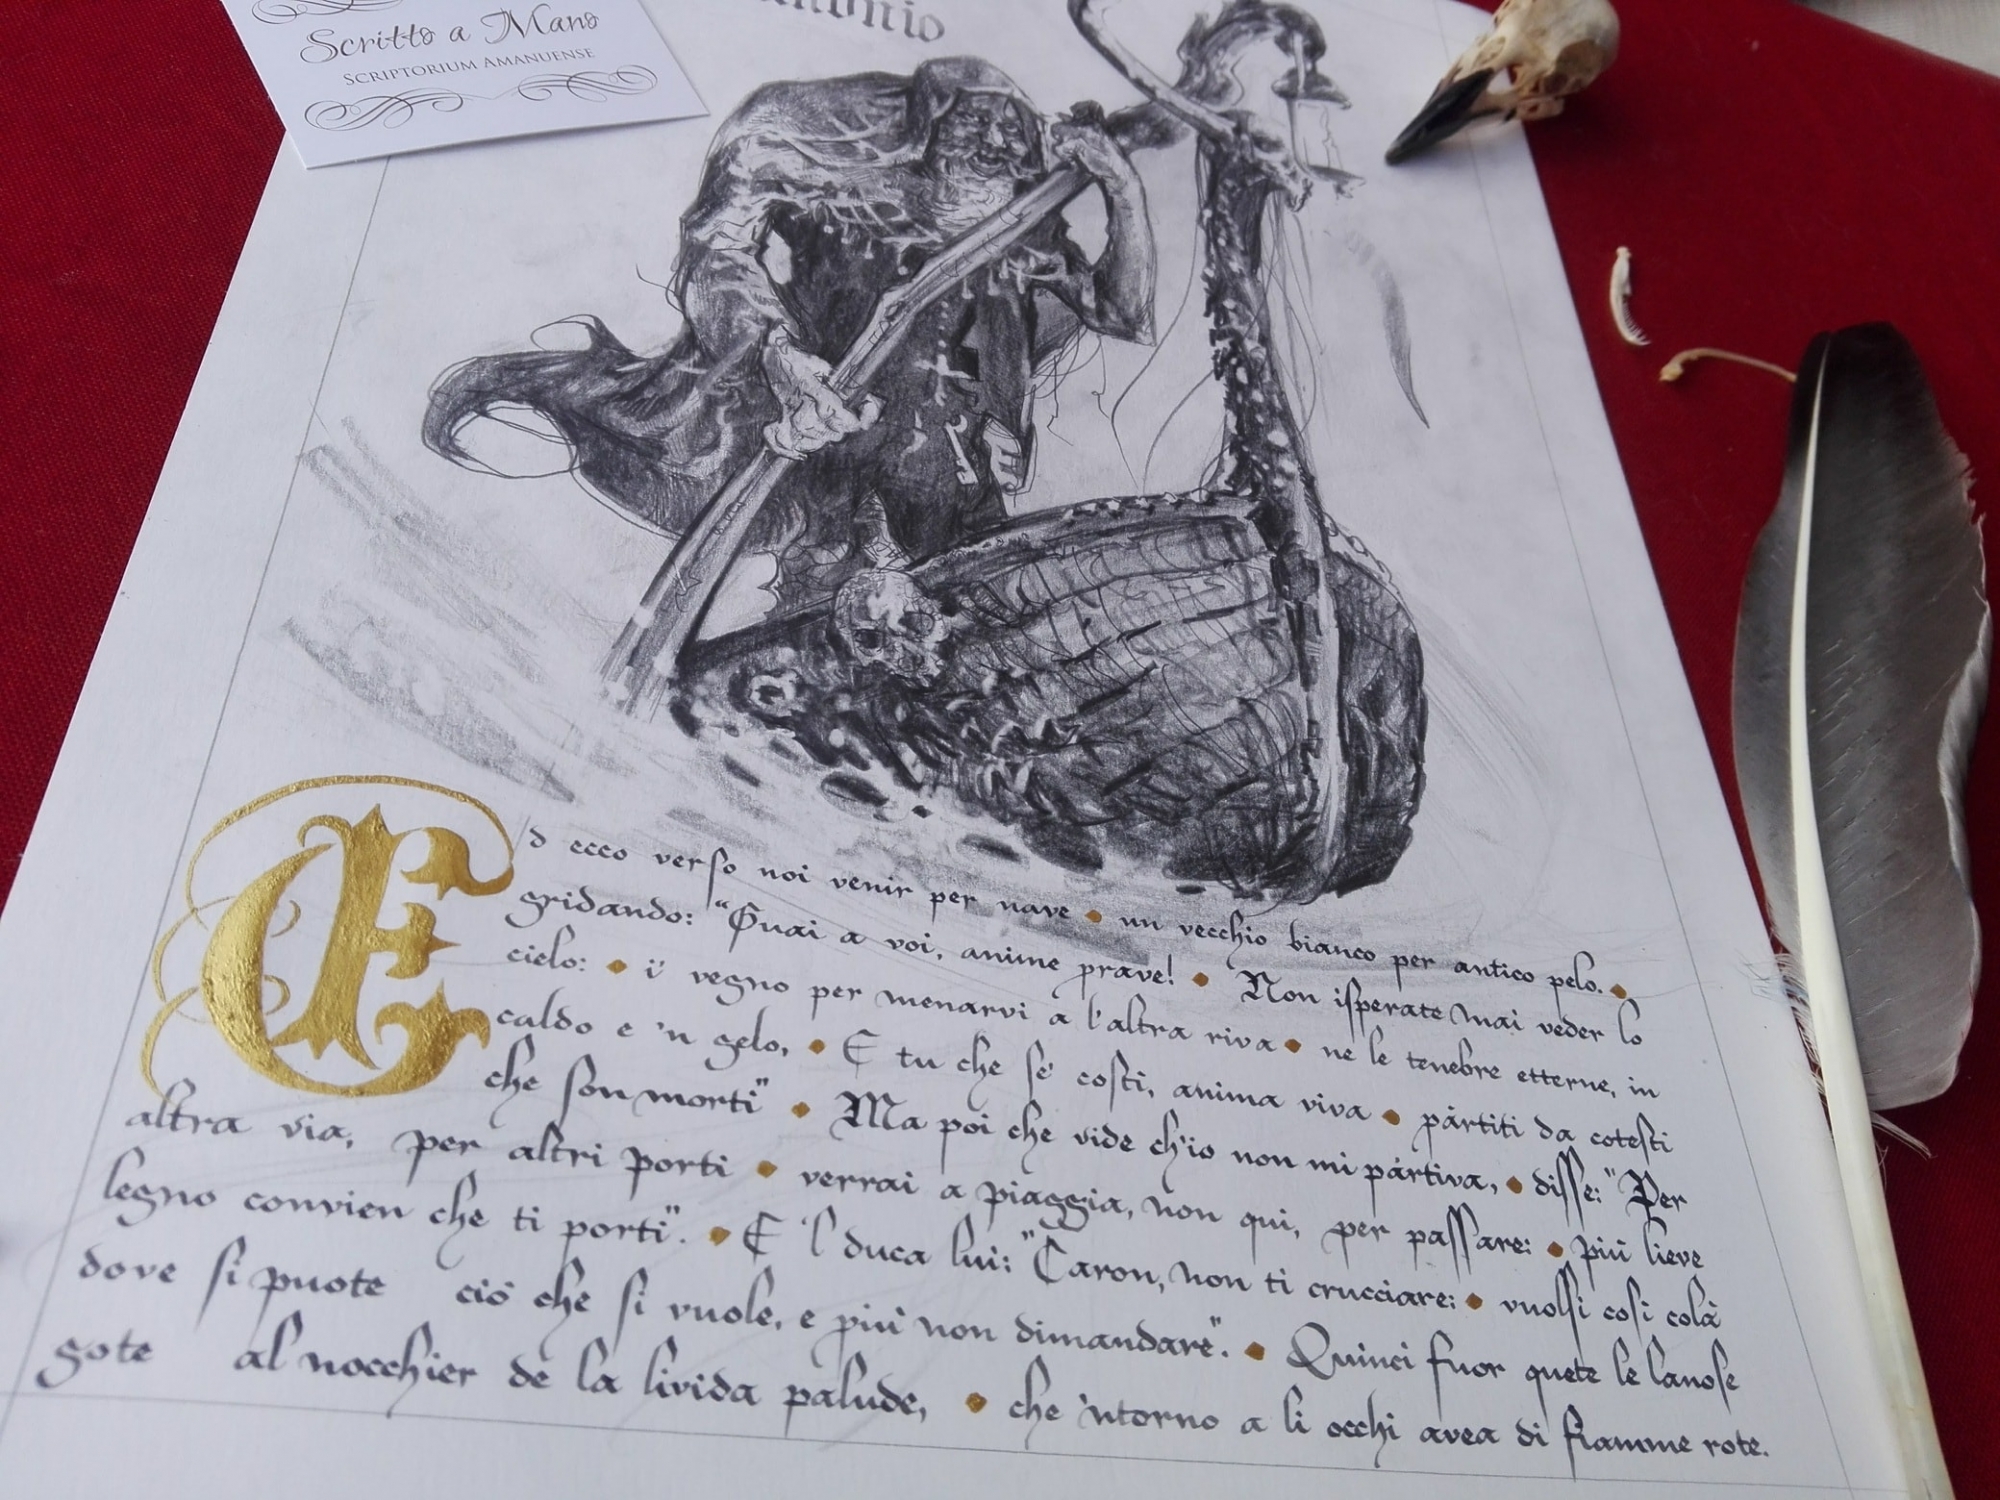 Scritto a Mano
SCRIPTORIUM AMANUENSE
Ed ecco verso noi venir per nave un vecchio bianco per antico pelo.
gridando: "Guai a voi, anime prave! Non isperate mai veder lo
cielo: i' vegno per menarvi a l'altra riva ne le tenebre etterne, in
caldo e 'n gelo, E tu che se' costì, anima viva pàrtiti da cotesti
che son morti" Ma poi che vide ch'io non mi pàrtiva, disse: "Per
altra via, per altri porti verrai a piaggia, non qui, per passare: più lieve
legno convien che ti porti". E 'l duca lui: "Caron, non ti crucciare: vuolsi così colà
dove si puote ciò che si vuole, e più non dimandare". Quinci fuor quete le lanose
gote al nocchier de la livida palude, che 'ntorno a li occhi avea di fiamme rote.